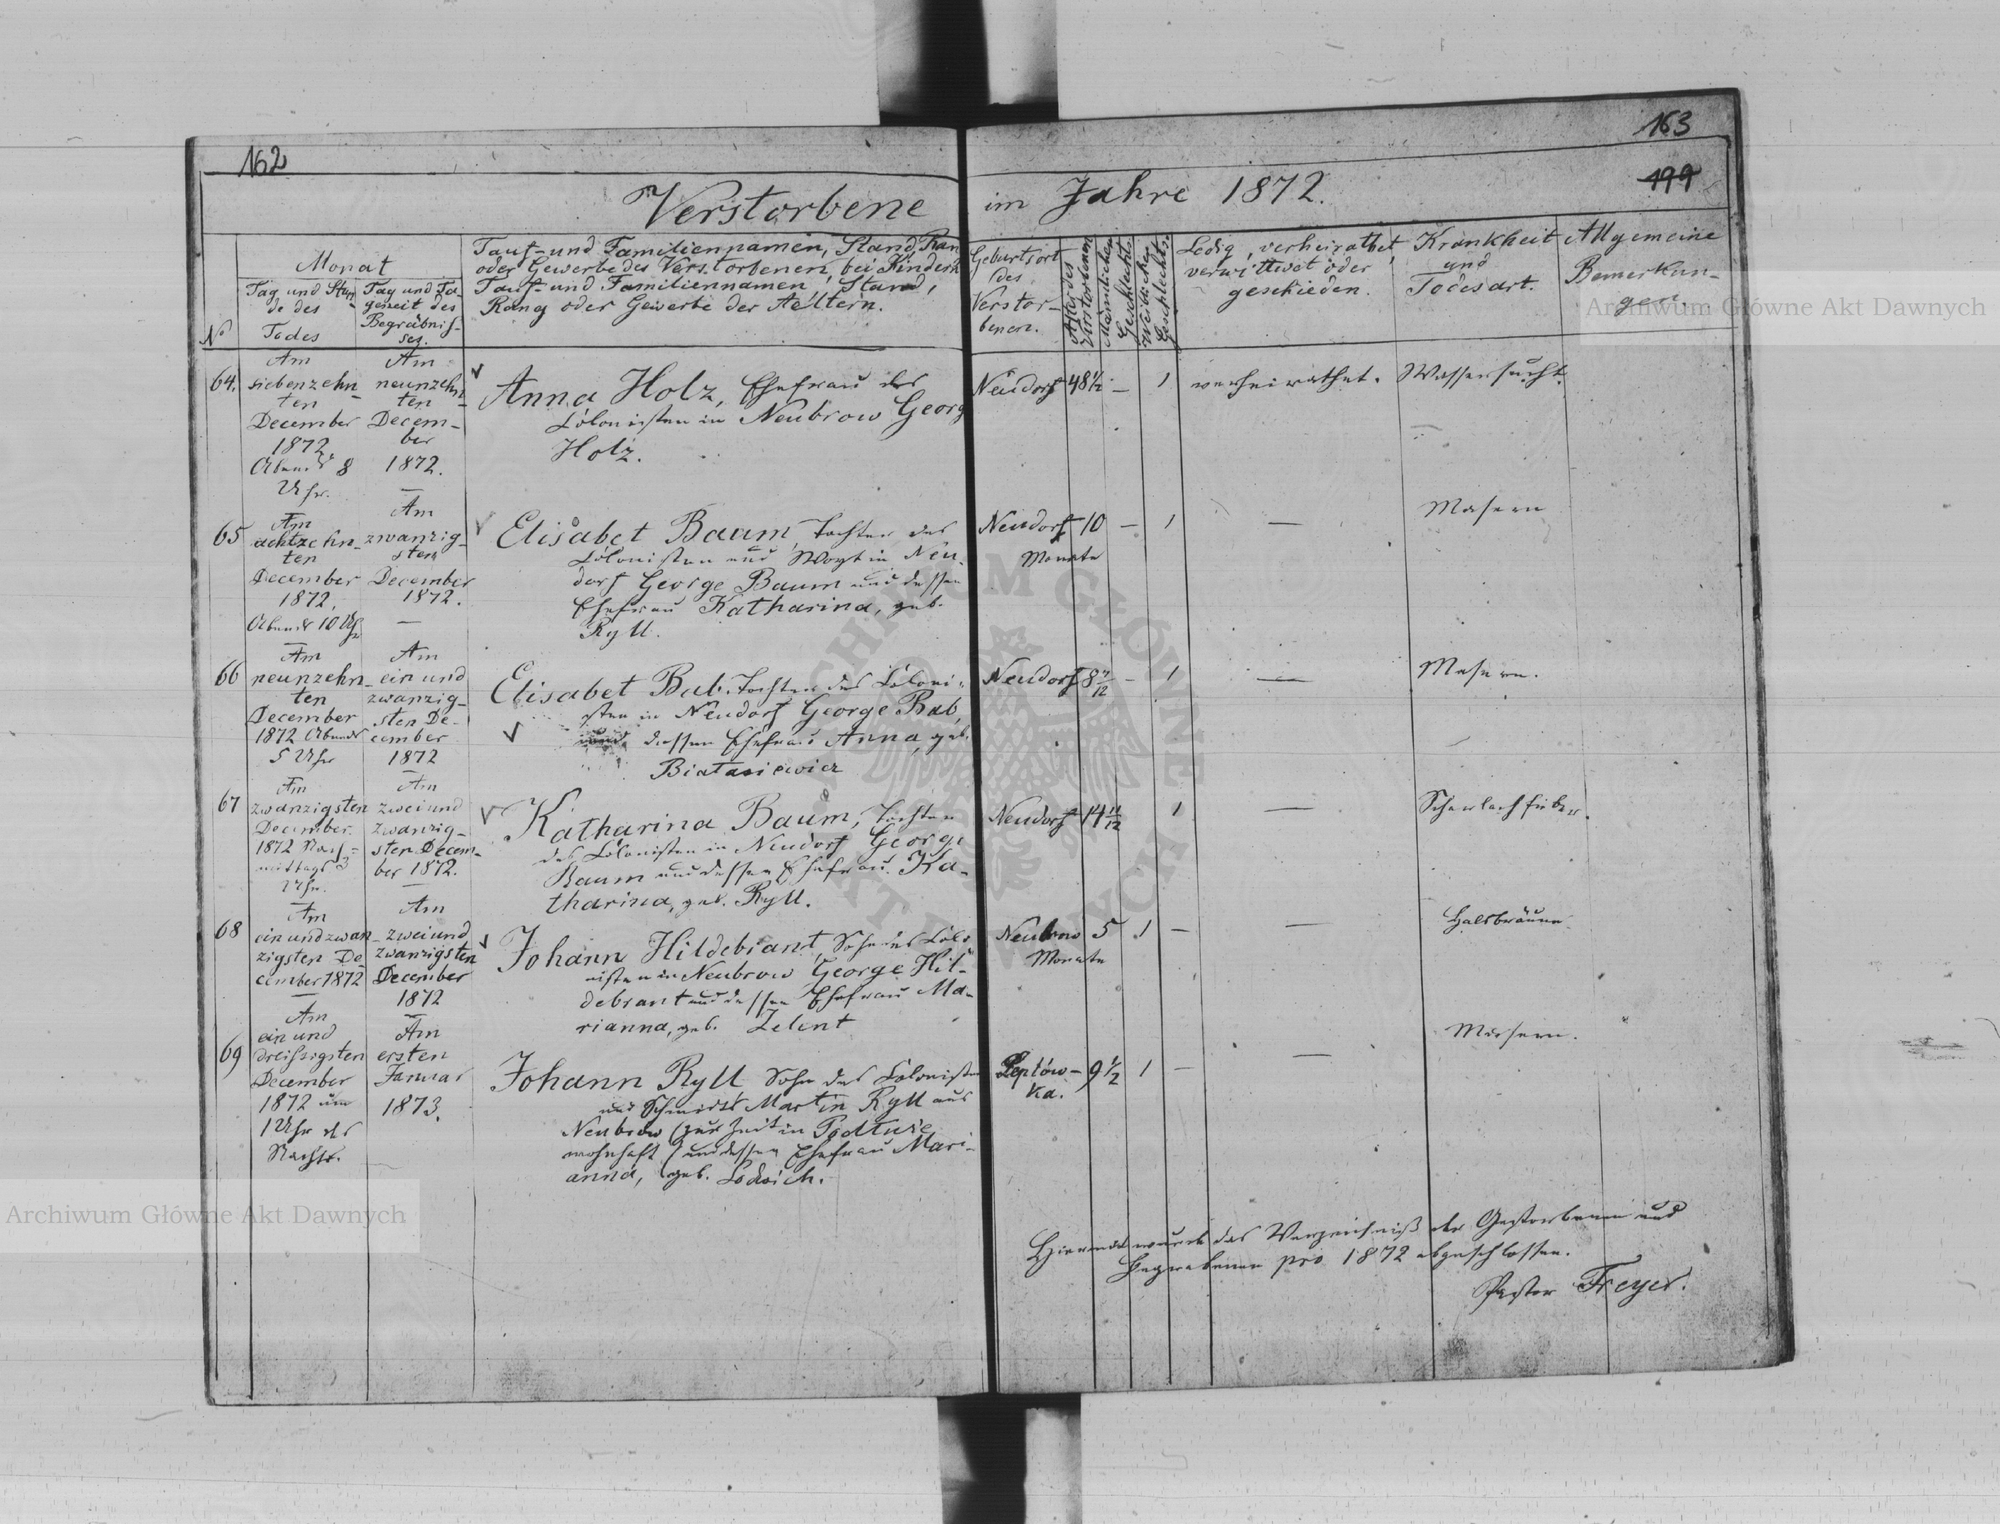 162
163
199
Verstorbene im Jahre 1872.
No
Monat
Tag und Stun-
de des
Todes
Tag und Ta-
geszeit des
Begräbnis-
ses.
Tauf- und Familiennamen, Stand, Ran
oder Gewerbe des Verstorbenen, bei Kindern
Tauf- und Familiennamen, Stand,
Rang oder Gewerbe der Aeltern.
Geburtsort
des
Verstor-
benen.
Alter des
Verstorbenen
Männlichen
Geschlechts.
Weiblichen
Geschlechts.
Ledig, verheirathet,
verwittwet oder
geschieden.
Krankheit
und
Todesart.
Allgemeine
Bemerkun-
gen.
64.
Am
siebenzehn-
ten
December
1872.
Abends 8
Uhr.
Am
neunzehn-
ten
Decem-
ber
1872.
Anna Holz, Ehefrau des
Colonisten in Neubrow Georg
Holz.
Neudorf 48 1/2 — 1 verheirathet. Wassersucht.
65
Am
achtzehn-
ten
December
1872.
Abends 10 Uhr
Am
zwanzig-
sten
December
1872.
Elisabet Baum, Tochter des
Colonisten und Woyt in Neu-
dorf George Baum und dessen
Ehefrau Katharina, geb.
Ryll.
Neudorf 10 — 1 — Masern
Monate
66
Am
neunzehn-
ten
December
1872 Abends
5 Uhr
Am
ein und
zwanzig-
sten De-
cember
1872
Elisabet Bab, Tochter des Coloni-
sten in Neudorf George Bab,
und dessen Ehefrau Anna, geb.
Białasiewicz
Neudorf 8 11/12 — 1 — Masern.
67
Am
zwanzigsten
December
1872 Nach-
mittags 3
Uhr.
Am
zwei und
zwanzig-
sten Decem-
ber 1872.
Katharina Baum, Tochter
des Colonisten in Neudorf George
Baum und dessen Ehefrau Ka-
tharina, geb. Ryll.
Neudorf 14 11/12 1 — Scharlachfieber.
68
Am
ein und zwan-
zigsten De-
cember 1872
Am
zwei und
zwanzigsten
December
1872
Johann Hildebrant, Sohn des Colo
nisten in Neubrow George Hil-
debrant und dessen Ehefrau Ma-
rianna, geb. Zelent
Neubrow 5 1 — — Halsbräune.
Monate
69
Am
ein und
dreißigsten
December
1872 um
1 Uhr des
Nachts.
Am
ersten
Januar
1873.
Johann Ryll Sohn des Coloniste
und Schmidts Martin Ryll aus
Neubrow (zur Zeit in
wohnhaft) und dessen Ehefrau Mari-
anna, geb.
ka. 9 1/2 1 — — Masern.
Hiermit wurde das Verzeichniß der Gestorbenen und
Begrabenen pro 1872 abgeschlossen.
Pastor Freyer.
Archiwum Główne Akt Dawnych
Archiwum Główne Akt Dawnych
ARCHIWUM GŁÓWNE AKT DAWNYCH